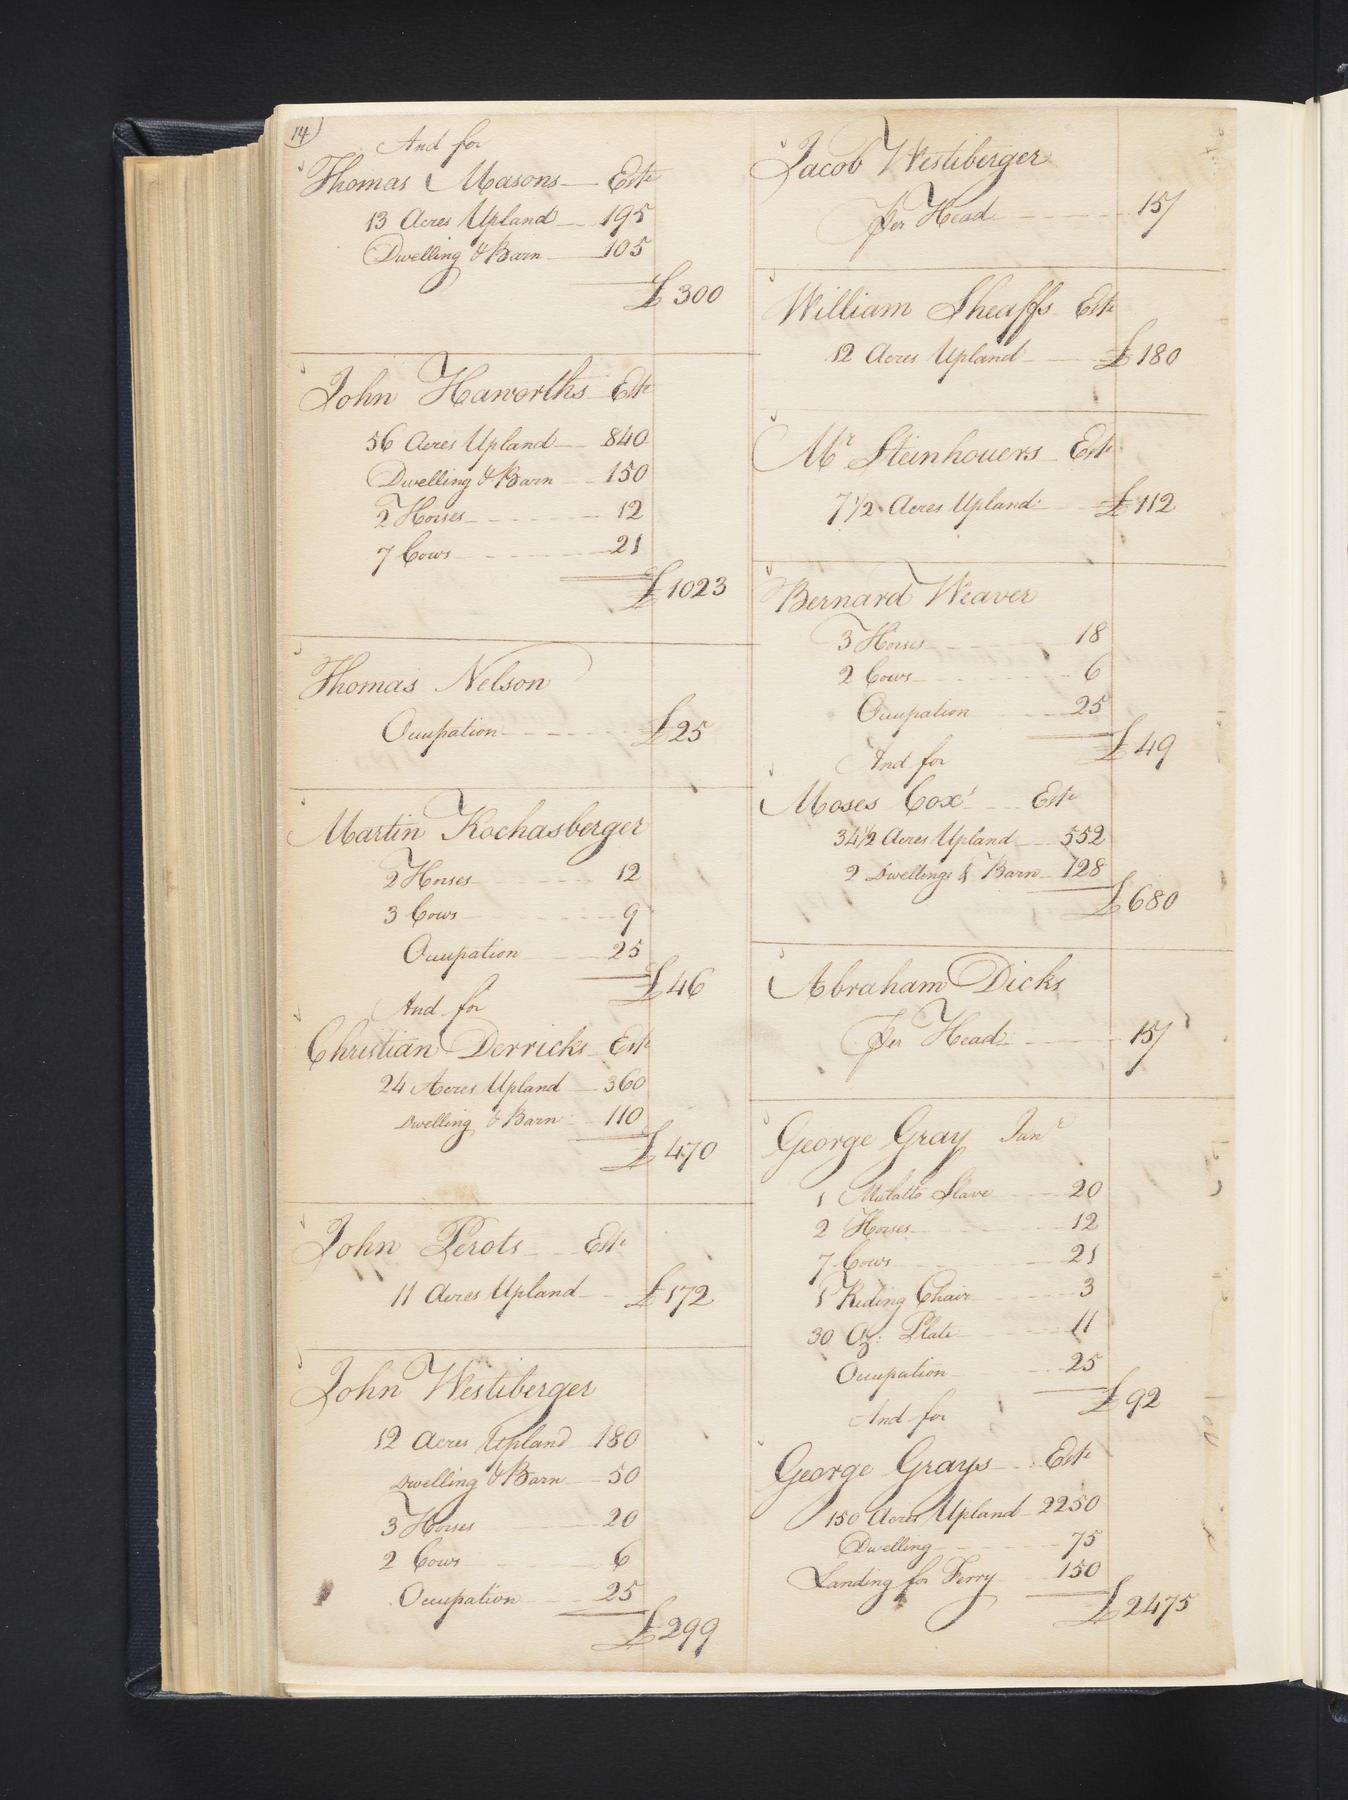 14
And for
Thomas Masons Este
13 Acres Upland 195
Dwelling & Barn 105
£ 300
John Haworths Este
56 Acres Upland 840
Dwelling & Barn 150
2 Horses 12
7 Cows 21
£ 1023
Thomas Nelson
Ocupation £ 25
Martin Kochasberger
2 Horses 12
3 Cows 9
Ocupation 25
£ 46
And for
Christian Derricks Este
24 Acres Upland 360
Dwelling & Barn 110
£ 470
John Perots Este
11 Acres Upland £ 172
John Westiberger
12 Acres Upland 180
Dwelling & Barn 50
3 Horses 20
2 Cows 6
Ocupation 25
£ 299
Jacob Westiberger
Per Head 15/
William Sheaffs Este
12 Acres Upland £ 180
Mr Steinhouers Este
7 1/2 Acres Upland £ 112
Bernard Weaver
3 Horses 18
2 Cows 6
Ocupation 25
£ 49
And for
Moses Cox' Este
34 1/2 Acres Upland 552
2 Dwellings & Barn 128
£ 680
Abraham Dicks
Per Head 15/
George Gray Junr
1 Mulatto Slave 20
2 Horses 12
7 Cows 21
1 Riding Chair 3
30 Oz: Plate 11
Ocupation 25
£ 92
And for
George Grays Este
150 Acres Upland 2250
Dwelling 75
Landing for Ferry 150
£ 2475